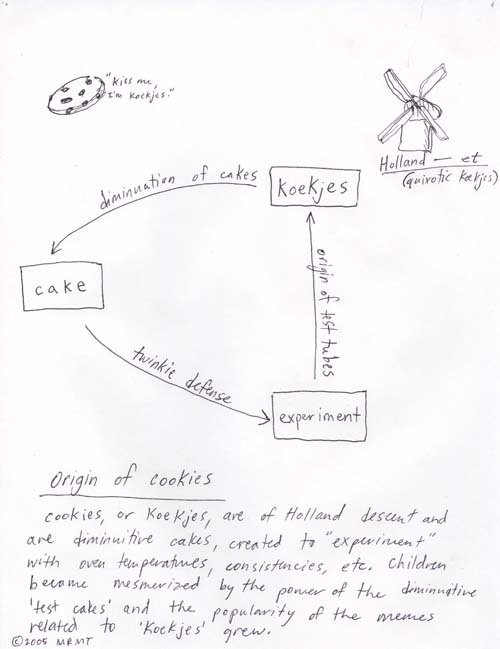 "Kiss me,
I'm Koekjes."
Holland — et
(quixotic Koekjes)
Koekjes
diminuation of cakes
cake
origin of test tubes
twinkie defense
experiment
Origin of cookies
cookies, or Koekjes, are of Holland descent and
are diminuitive cakes, created to "experiment"
with oven temperatures, consistencies, etc. Children
become mesmerized by the power of the diminuitive
'test cakes' and the popularity of the memes
related to 'Koekjes' grew.
©2005 MRMT